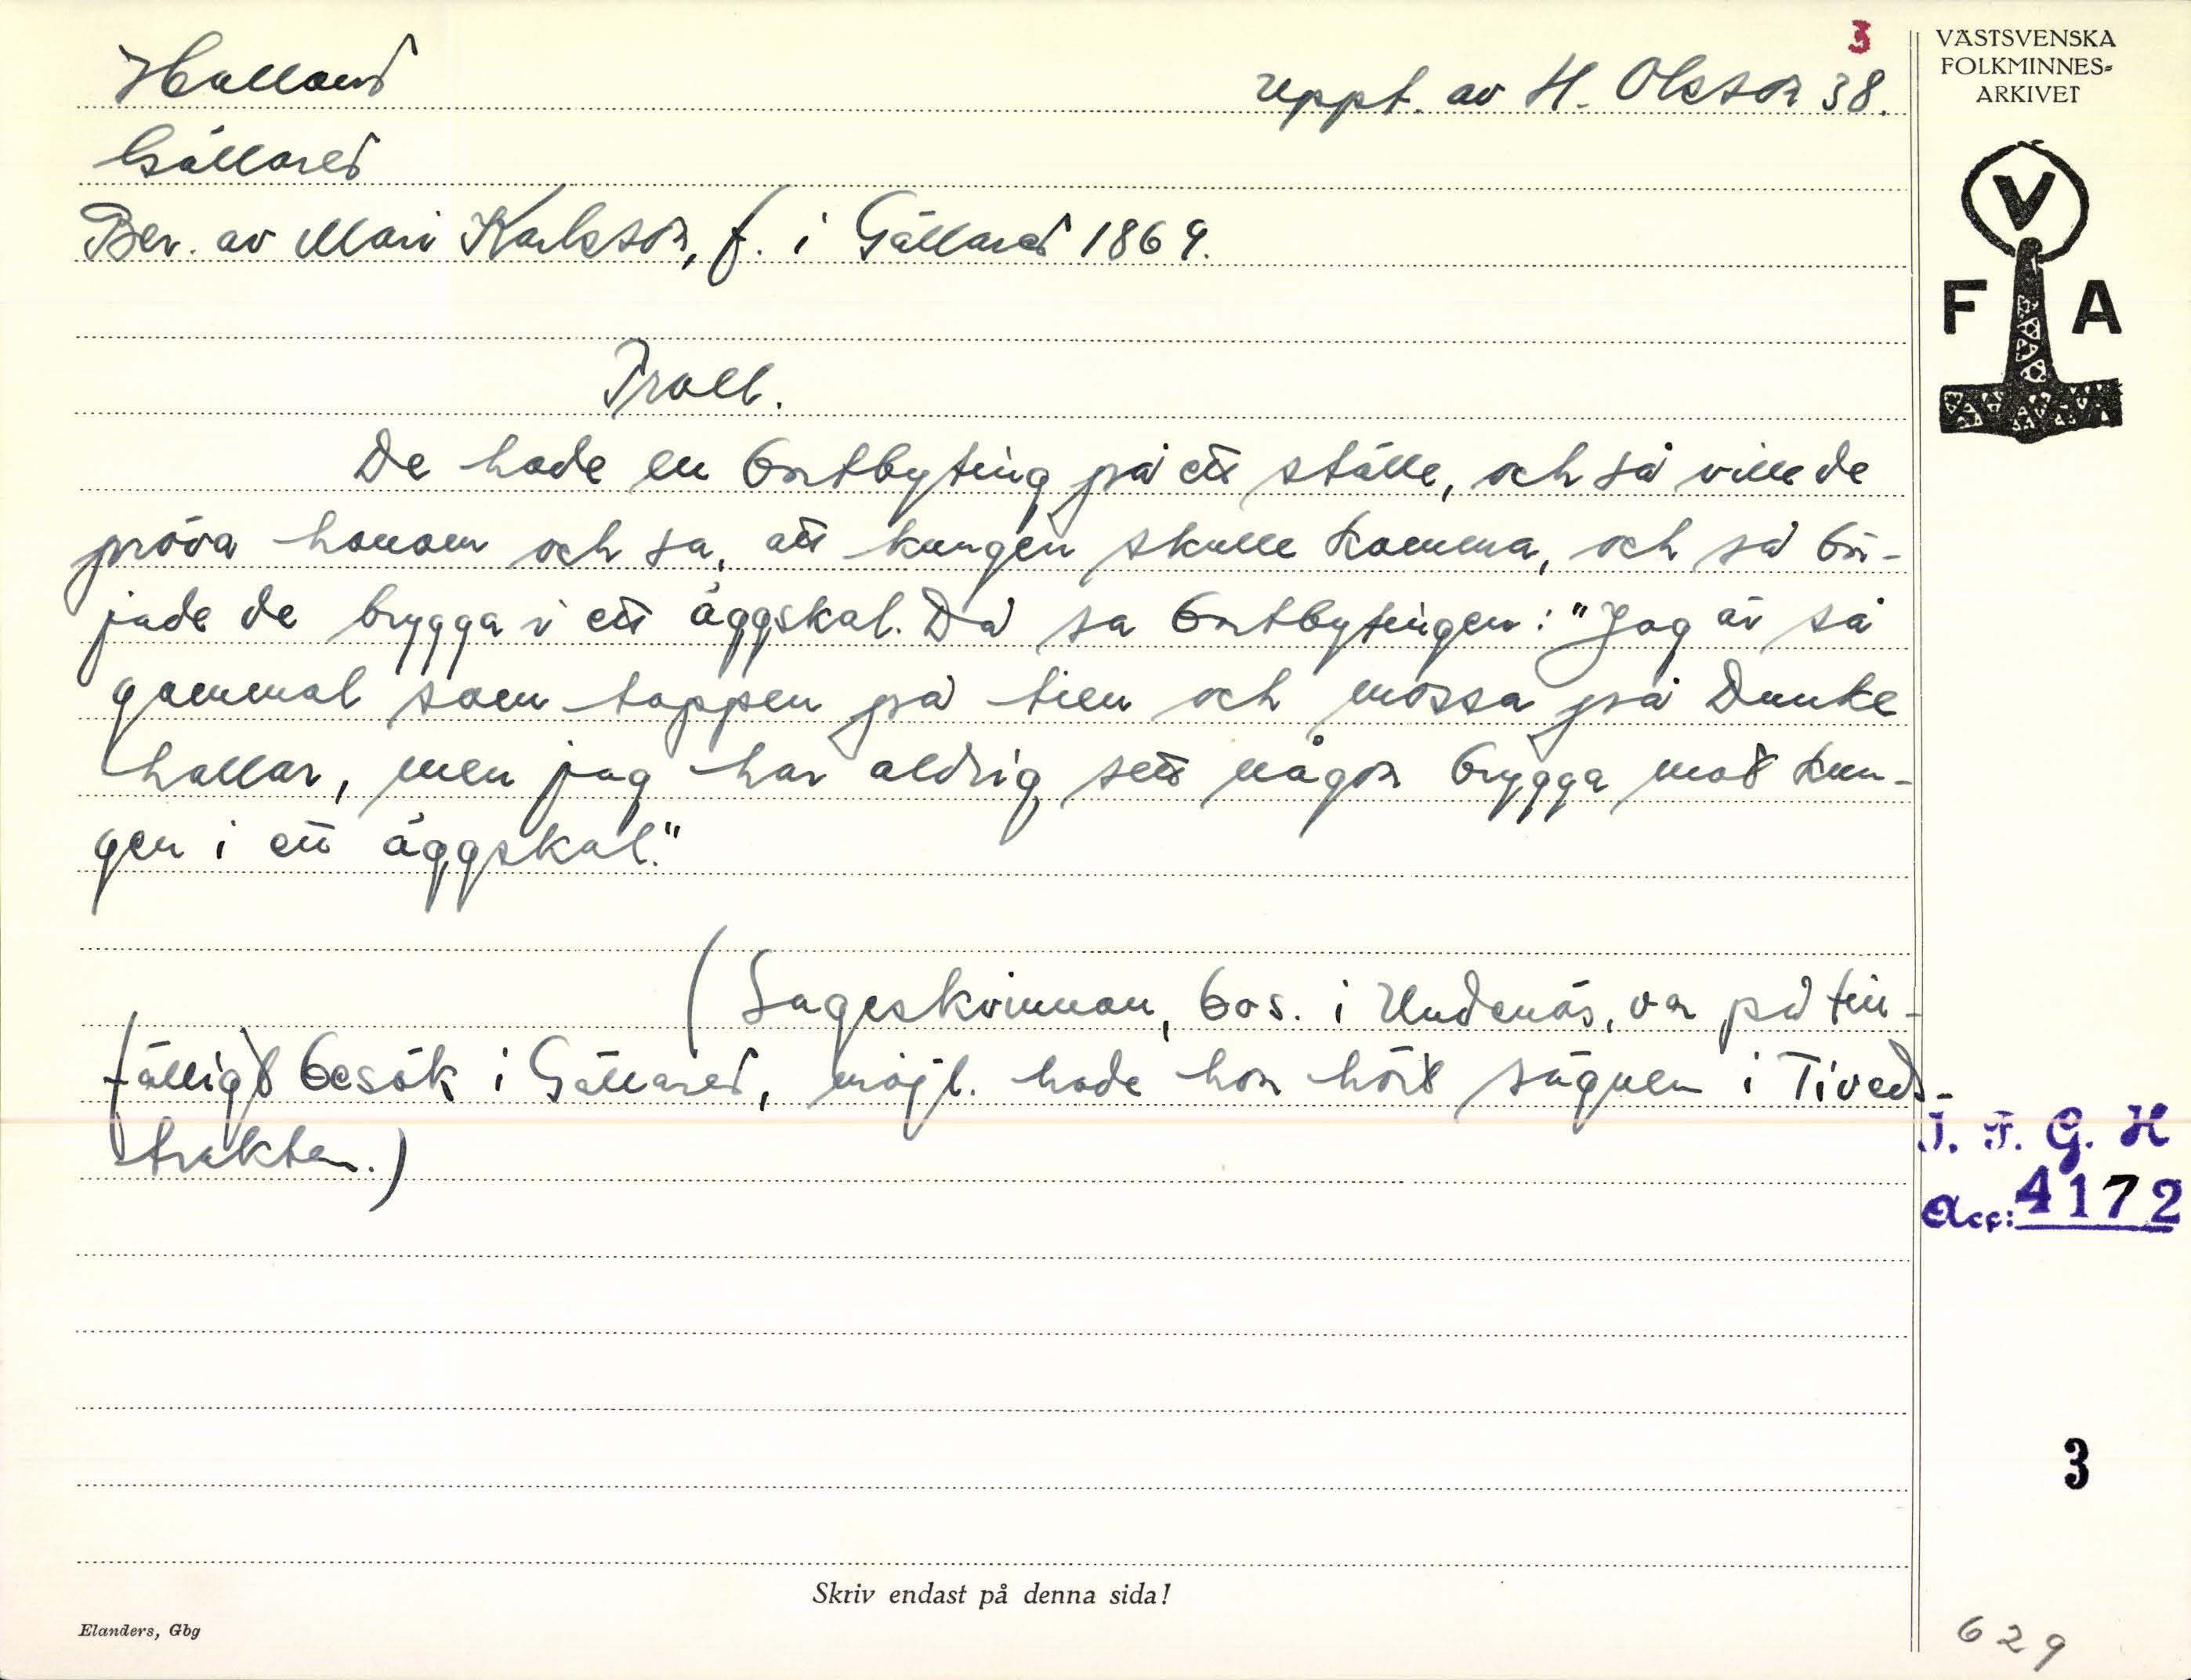 3
VÄSTSVENSKA
FOLKMINNES=
ARKIVET
Halland
uppt. av H. Olsson 38.
Gällared
Ber. av Mari Karlsson, f. i Gällared 1869.
V
F A
Troll.
De hade en bortbyting på ett ställe, och så ville de
pröva honom och sa, att kungen skulle komma, och så bör-
jade de brygga i ett äggskal. Då sa bortbytingen: "Jag är så
gammal som toppen på tien och mossa på Dunke
hallar, men jag har aldrig sett någon brygga mot kun-
gen i ett äggskal."
(Sageskvinnan, bos. i Undenäs, var på till-
fälligt besök i Gällared, möjl. hade hon hört sägnen i Tiveds-
trakten.)
I. F. G. H
Acc: 4172
3
Skriv endast på denna sida!
Elanders, Gbg
629